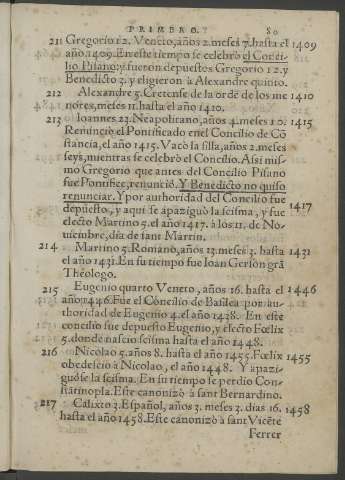 PRIMERO. 80
211 Gregorio 12. Veneto, años 2. meses 7. hasta el 1409
año. 1409. En este tiempo se celebrò el Conci-
lio Pisano, y fueron depuestos Gregorio 12. y
Benedicto 3. y eligieron à Alexandre quinto.
212 Alexandre 5. Cretense de la ordē de los me 1410
nores, meses 11. hasta el año 1410.
213 Ioannes 23. Neapolitano, años 4. meses 10. 1415
Renunciò el Pontificado en el Concilio de Cõ
stancia, el año 1415. Vacò la silla, años 2. meses
seys, mientras se celebrò el Concilio. Assi mis-
mo Gregorio que antes del Concilio Pisano
fue Pontifice, renunciò. Y Benedicto no quiso
renunciar. Y por authoridad del Concilio fue
depuesto, y aqui se apaziguò la scisma, y fue 1417
electo Martino 5. el año 1417. à los 11. de No-
uiembre, dia de sant Martin.
214 Martino 5. Romano, años 13. meses 3. hasta 1431
el año 1431. En su tiempo fue Ioan Gerson grā
Theologo.
215 Eugenio quarto Veneto, años 16. hasta el 1446
año 1446. Fue el Concilio de Basilea por au-
thoridad de Eugenio 4. el año 1438. En este
concilio fue depuesto Eugenio, y electo Fœlix
5. donde nascio scisma hasta el año 1448.
216 Nicolao 5. años 8. hasta el año 1455. Fœlix 1455
obedescio à Nicolao, el año 1448. Y apazi-
guòse la scisma. En su tiempo se perdio Con-
stātinopla. Este canonizò à sant Bernardino.
217 Calixto 3. Español, años 3. meses 3. dias 16. 1458
hasta el año 1458. Este canonizò à sant Vicēte
Ferrer